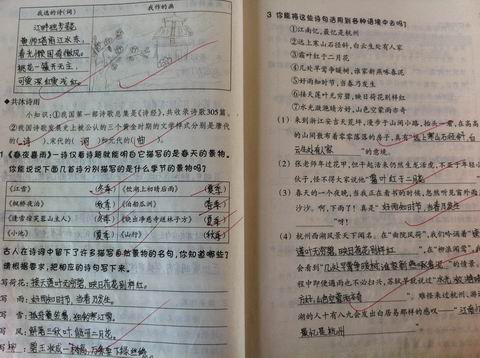 我选的诗(词)
我作的画
江畔独步寻花
黄师塔前江水东,
春光懒困倚微风。
桃花一簇开无主,
可爱深红爱浅红。
◆共沐诗雨
小知识:①我国第一部诗歌总集是《诗经》,共收录诗歌305篇。
②我国诗歌发展史上被公认的三个黄金时期的文学样式分别是唐代
的(诗)、宋代的(词)和元代的(曲)。
1《春夜喜雨》一诗仅看诗题就能明白它描写的是春天的景物。
你能说说下面几首诗分别描写的是什么季节的景物吗?
《江雪》 (冬季) 《忆湖上初晴后雨》 (夏季)
《枫桥夜泊》 (秋季) 《泊船瓜洲》 (春季)
《逢雪宿芙蓉山主人》 (冬季) 《晓出净慈寺送林子方》 (夏季)
《小池》 (夏季) 《山行》 (秋季)
古人在诗词中留下了许多描写自然景物的名句,你知道哪些?
请根据要求,把相应的诗句写下来。
写荷花:接天莲叶无穷碧,映日荷花别样红
写 雨:好雨知时节,当春乃发生
写 雪:孤舟蓑笠翁,独钓寒江雪。
写 风:解落三秋叶,能开二月花。
写 柳:碧玉妆成一树高,万条垂下绿丝绦
3 你能将这些诗句活用到各种语境中去吗?
①江南忆,最忆是杭州
②远上寒山石径斜,白云生处有人家
③霜叶红于二月花
④几处早莺争暖树,谁家新燕啄春泥
⑤好雨知时节,当春乃发生
⑥接天莲叶无穷碧,映日荷花别样红
⑦水光潋滟晴方好,山色空蒙雨亦奇
(1) 来到浙江安吉天荒坪,漫步于山间小路,抬头一看,在高高
的山间散布着零零落落的房子,真有“远上寒山石径斜,白
云生处有人家”的意境。
(2) 张老师年过花甲,但干起活来仍然生龙活虎,不亚于年轻小
伙子,怪不得大家说他“霜叶红于二月花”
(3) 春天的一个夜晚,当我正在看书的时候,忽然听见窗外雨
沙沙。啊,下雨了!真是“好雨知时节,当春乃发生
”呀!
(4) 杭州西湖风景天下闻名。在“曲院风荷”,我们吟诵着“接天
莲叶无穷碧,映日荷花别样红”,在“柳浪闻莺”,我们
会看到“几处早莺争暖树,谁家新燕啄春泥”的情景。
程中即使遇雨也不必扫兴,苏轼早就说过“水光潋滟晴
方好,山色空蒙雨亦奇”。难怪来过杭州、游过
湖的人十有八九会发出白居易那样的感叹——“江南忆
最忆是杭州